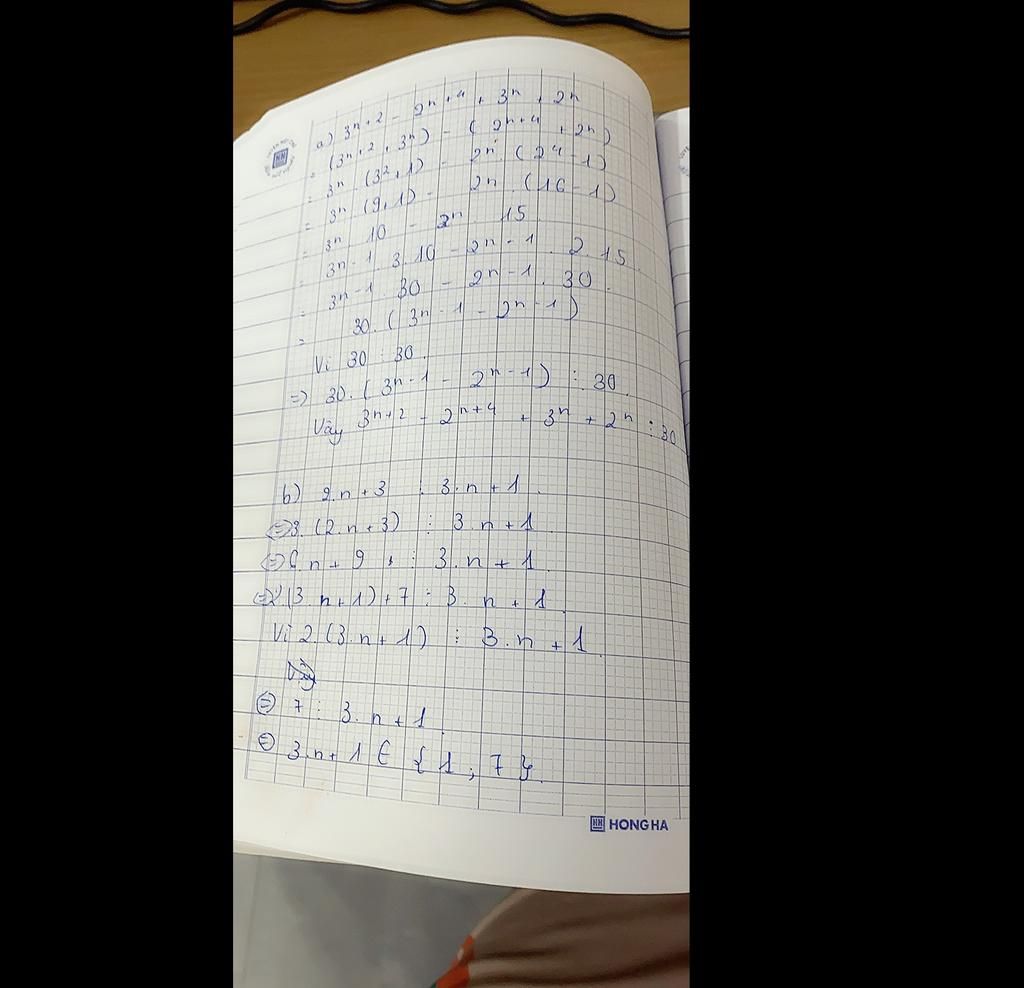 a) 3ⁿ⁺² - 2ⁿ⁺⁴ + 3ⁿ + 2ⁿ
= (3ⁿ⁺² + 3ⁿ) - (2ⁿ⁺⁴ + 2ⁿ)
= 3ⁿ . (3² + 1) - 2ⁿ . (2⁴ - 1)
= 3ⁿ . (9 + 1) - 2ⁿ . (16 - 1)
= 3ⁿ . 10 - 2ⁿ . 15
= 3ⁿ⁻¹ . 3.10 - 2ⁿ⁻¹ . 2.15
= 3ⁿ⁻¹ . 30 - 2ⁿ⁻¹ . 30.
= 30.(3ⁿ⁻¹ - 2ⁿ⁻¹)
Vì 30 ⋮ 30.
=> 30.(3ⁿ⁻¹ - 2ⁿ⁻¹) ⋮ 30
Vậy 3ⁿ⁺² - 2ⁿ⁺⁴ + 3ⁿ + 2ⁿ ⋮ 30
b) 2.n + 3 ⋮ 3.n + 1.
<=> 3.(2.n + 3) ⋮ 3.n + 1
<=> 6.n + 9 ⋮ 3.n + 1.
<=> 2.(3.n + 1) + 7 ⋮ 3.n + 1
Vì 2.(3.n + 1) ⋮ 3.n + 1.
Vậy
<=> 7 ⋮ 3.n + 1
<=> 3.n + 1 ∈ {1 ; 7}.
HONG HA